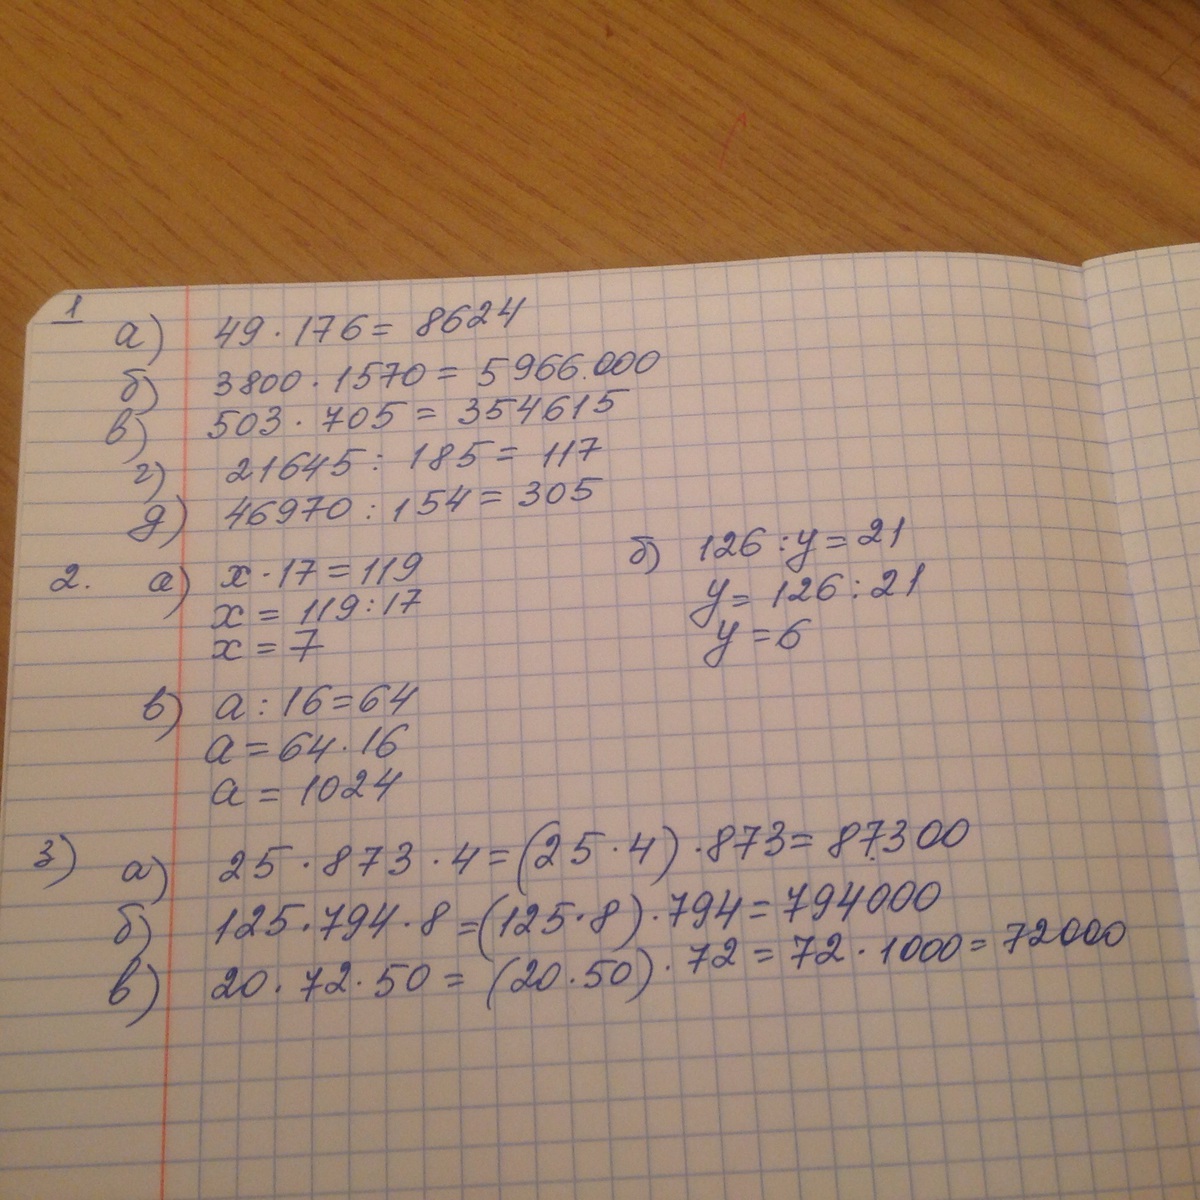 1
а) 49 · 176 = 8624
б) 3800 · 1570 = 5966.000
в) 503 · 705 = 354615
г) 21645 : 185 = 117
д) 46970 : 154 = 305
2. а) x · 17 = 119
x = 119 : 17
x = 7
б) 126 : y = 21
y = 126 : 21
y = 6
в) a : 16 = 64
a = 64 · 16
a = 1024
3) а) 25 · 873 · 4 = (25 · 4) · 873 = 87.300
б) 125 · 794 · 8 = (125 · 8) · 794 = 794000
в) 20 · 72 · 50 = (20 · 50) · 72 = 72 · 1000 = 72000